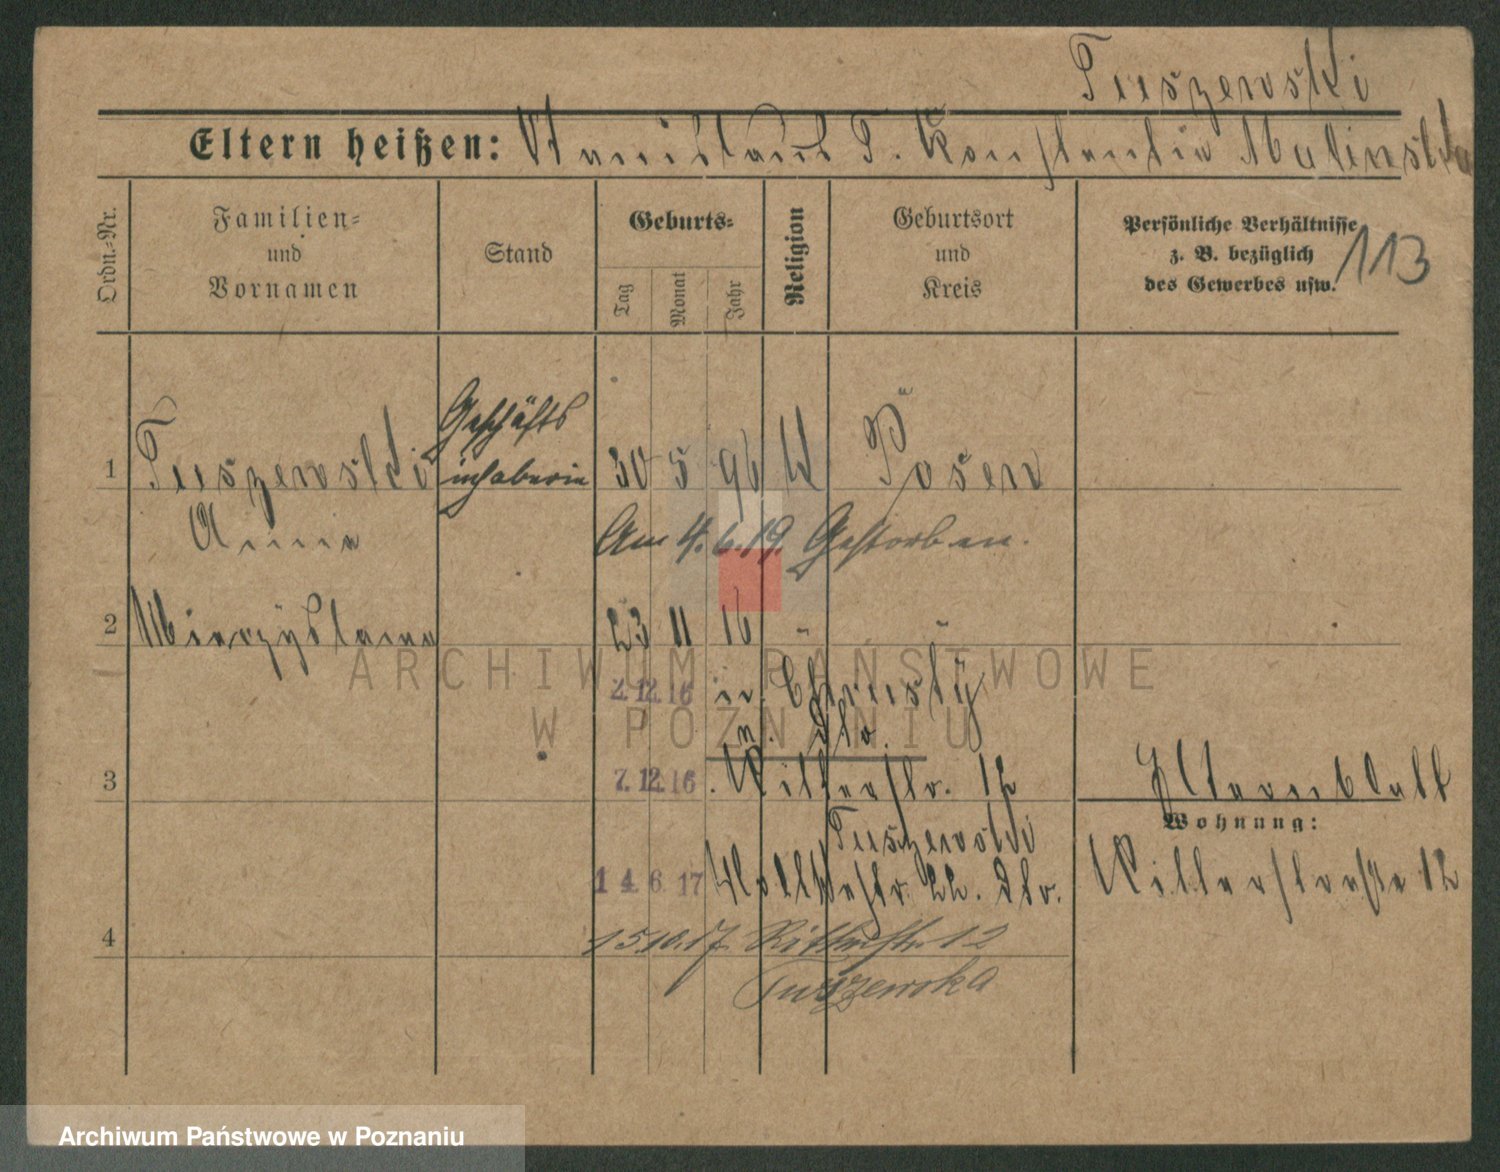 Tuszewski
Eltern heißen: Stanislaus T. Konstantia Malinska
Ordn.-Nr.
Familien-
und
Vornamen
Stand
Geburts-
Tag
Monat
Jahr
Religion
Geburtsort
und
Kreis
Persönliche Verhältnisse
z. B. bezüglich
des Gewerbes usw.
113
Geschäfts
1 Tuszewski inhaberin 30 5 96 k Posen
Anna
Am 4.6.19. Gestorben.
2 Mieczyslawa 23 11 16
ARCHIWUM PAŃSTWOWE
W POZNANIU
2.12.16 in Chrusty
n. Dlo.
3 7.12.16. Ritterstr. 12
Elternblatt
Wohnung:
Tuszewski
14.6.17 22. Dlo.
Ritterstraße 12
4 15.10.17. Ritterstr. 12
Tuszewska
Archiwum Państwowe w Poznaniu